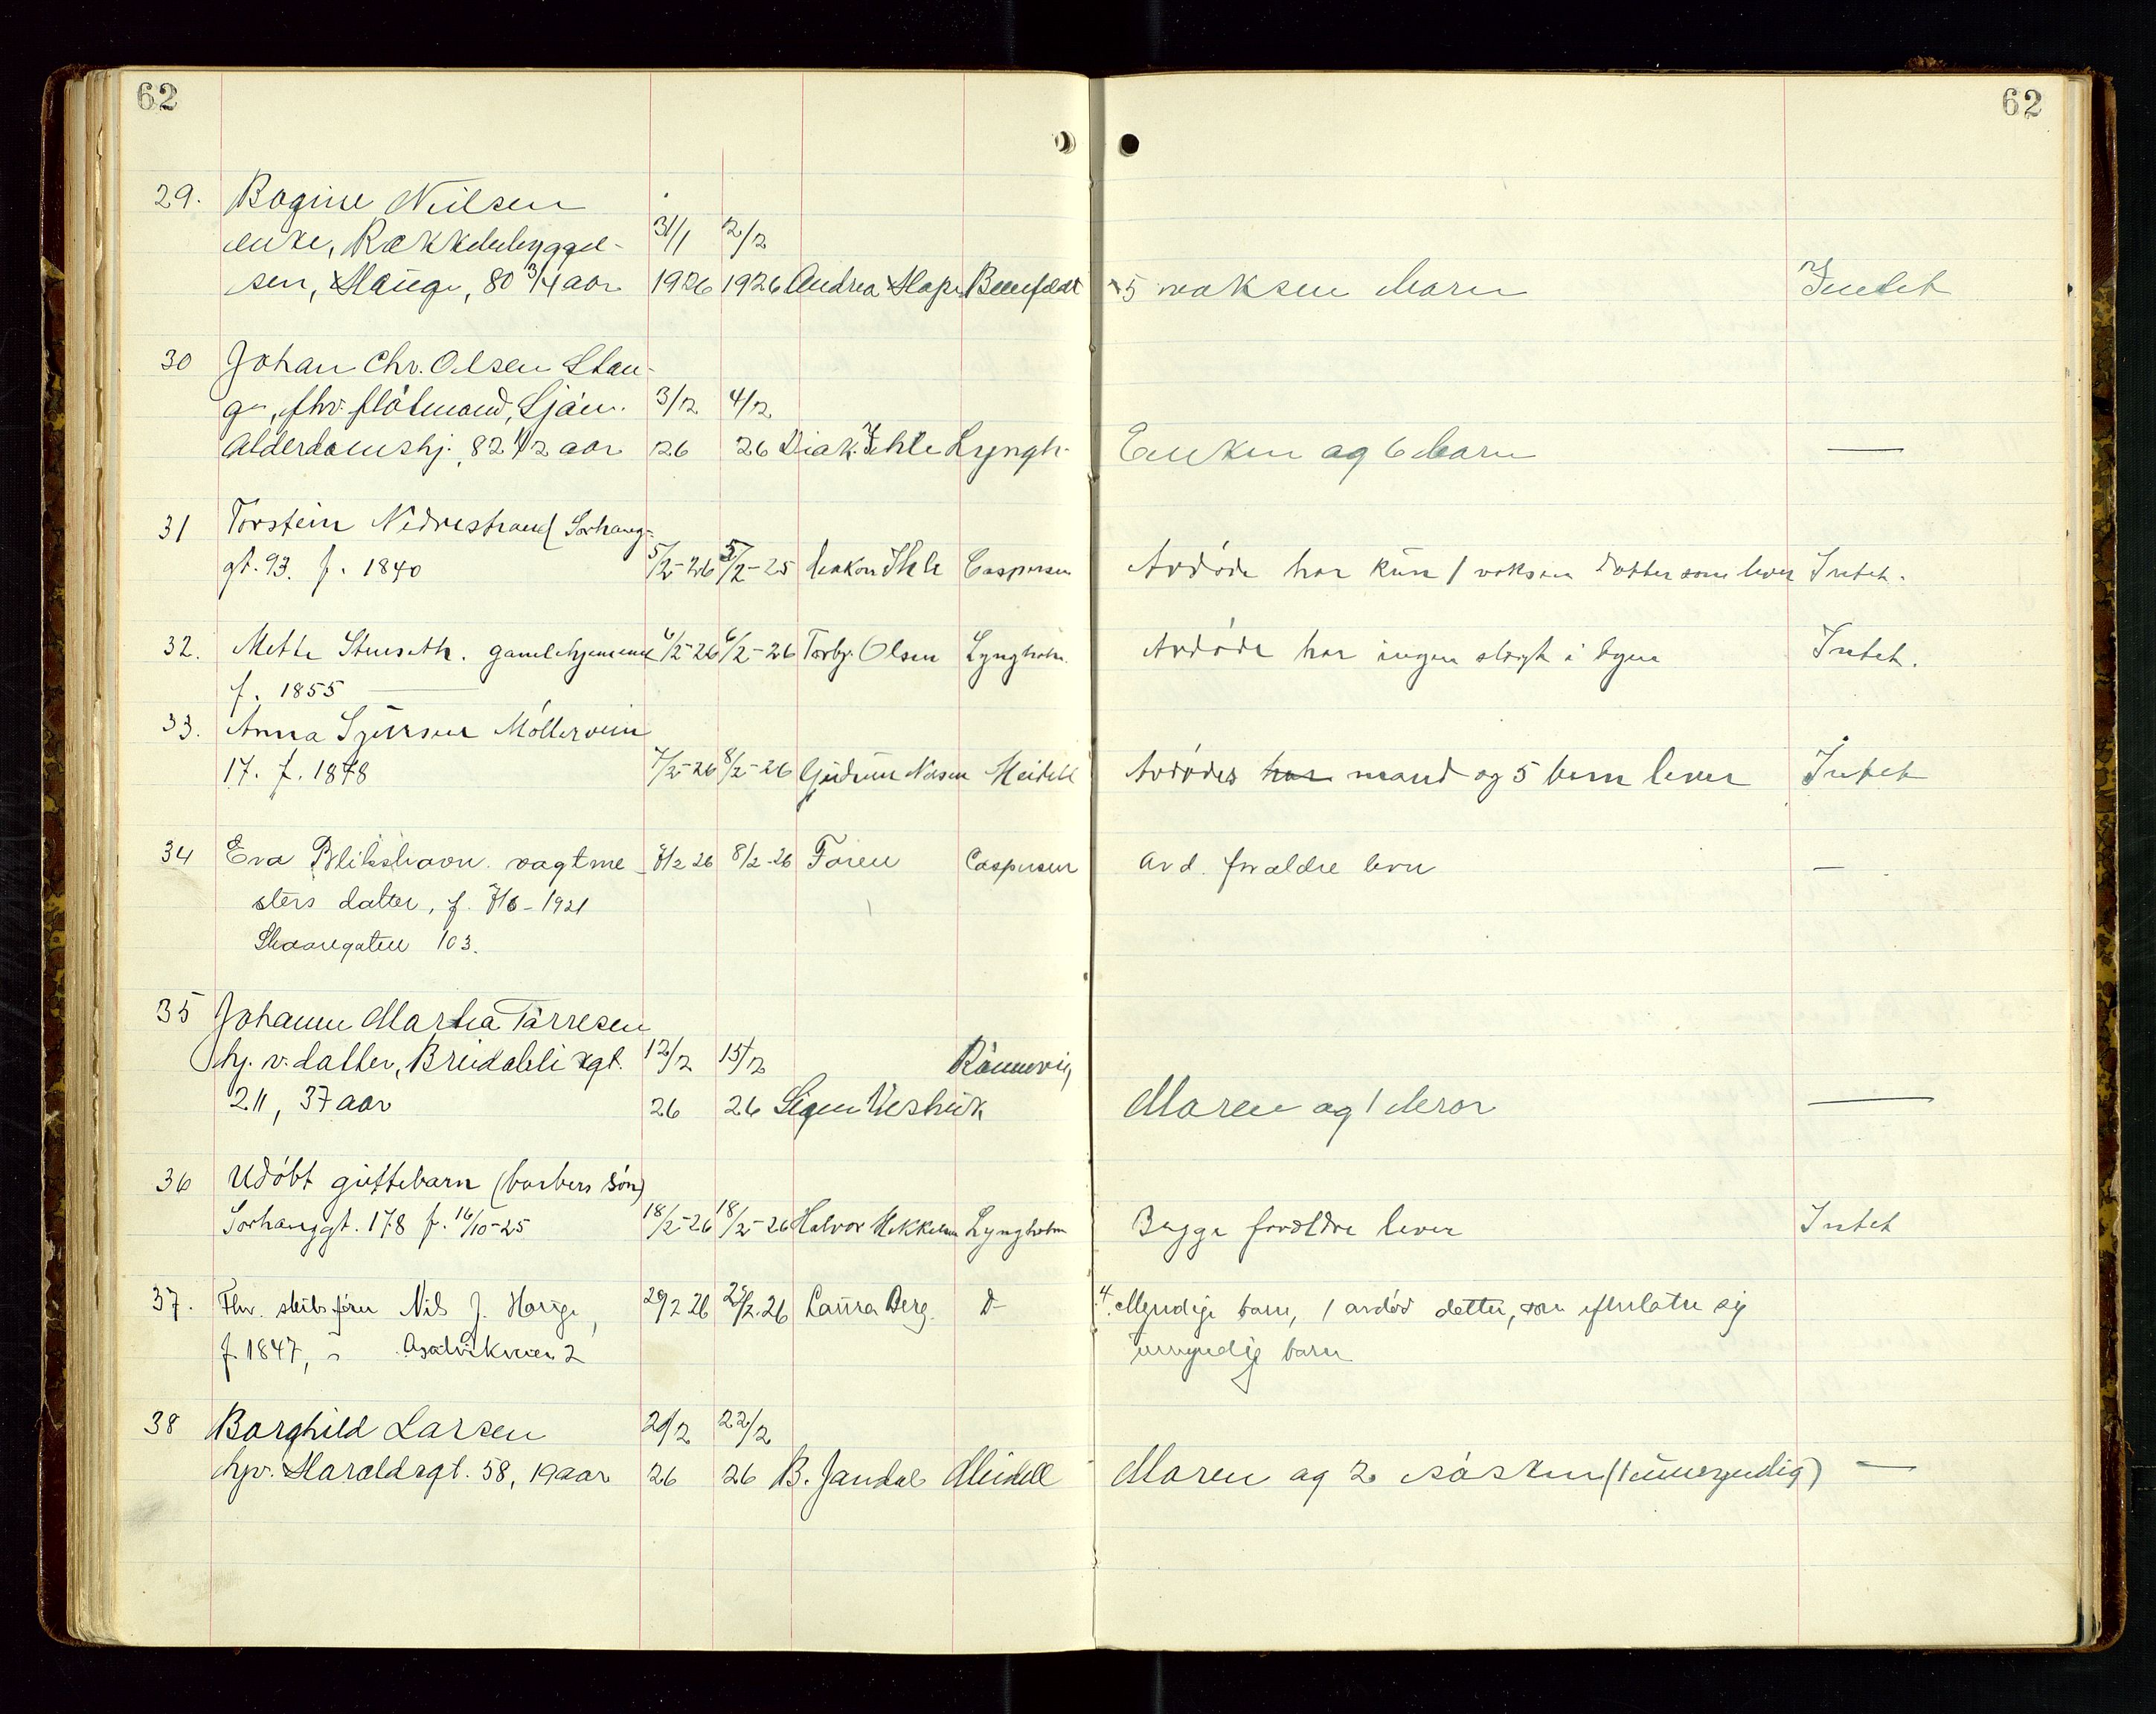 62
62
29. Bogine Nilsen
enke, Rækkebebyggel-
sen, Hauge, 80 3/4 aar 31/1 1926 2/2 1926 Andrea Hope 5 voksne barn Intet
30 Johan Chr. Olsen Stan-
ge, fhv. flötmand, Sjöm.
Alderdomshj. 82 1/2 aar 3/2 26 4/2 26 Diak. Ihle Lyngh. Enken og 6 barn —
31 Torstein Nedrestrand Sørhaug-
gt. 93. f. 1840 5/2-26 5/2-25 Diakon Ihle Caspersen Avdöde har kun 1 voksen datter som lever Intet.
32. Mette Stenseth. gamlehjemmet 6/2-26 6/2-26 Torbj. Olsen Lyngholm. Avdöde har ingen slegt i byen Intet.
f. 1855
33. Anna Syversen Möllervein
17. f. 1878 7/2-26 8/2-26 Gudrun Næsen Meidell Avdödes har mand og 5 barn lever Intet
34 Eva Blikshavn. vagtme- 7/2 26 8/2-26 Faren Caspersen Avd. forældre lever —
sters datter, f. 7/6-1921
Skaaregaten 103.
35 Johanne Martha Tørresen
hj. v. datter, Breidablikgt. 12/2 15/2 Rönnevig
211, 37 aar 26 26 Signe Moren og 1 bror —
36 Udöbt guttebarn (barbers sön)
Sörhauggt. 178 f. 16/10-25 18/2-26 18/2-26 Halvor Mekkelsen Lyngholm Begge forældre lever Intet
37. Fhv. skibsförer Nils J. Hauge, 20/2 26 22/2.26 Laura Berg. D- 4 Myndige barn, 1 avdöd datter, som efterlater sig
f. 1847, Asalvikveien 2 umyndig barn
38 Borghild Larsen 20/2 22/2
hjv. Haraldsgt. 58, 19 aar 26 26 B. Jandal Meidell Moren og 2 søsken (1 umyndig) —